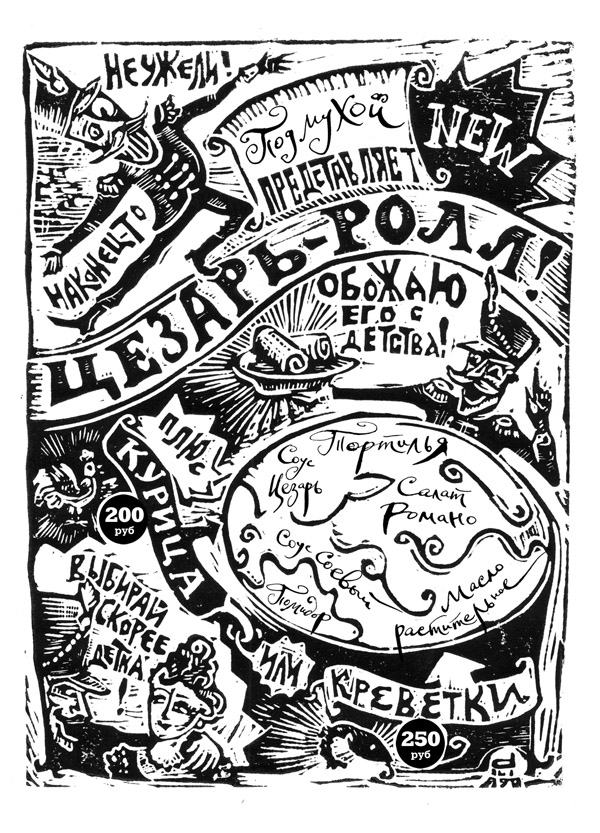 НЕУЖЕЛИ!
Подмухой
ПРЕДСТАВЛЯЕТ
NEW
НАКОНЕЦТО
ЦЕЗАРЬ-РОЛЛ!
ОБОЖАЮ
ЕГО С
ДЕТСТВА!
ПЛЮС
КУРИЦА
200
руб
Тортилья
Соус
Цезарь
Салат
Романо
Соус Соевый
Помидор
Масло
растительное
ВЫБИРАЙ
СКОРЕЕ
ДЕТКА
!
ИЛИ
КРЕВЕТКИ
250
руб